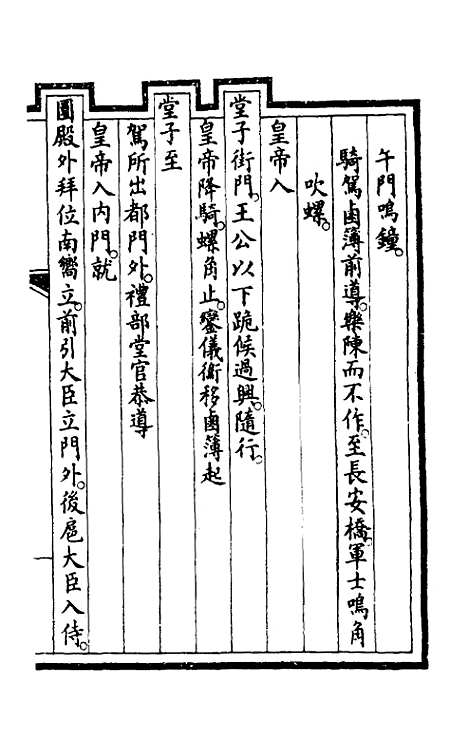 午門鳴鐘。
騎駕鹵簿前導。樂陳而不作。至長安橋。軍士鳴角
吹螺。
皇帝入
堂子街門。王公以下跪候過。興。隨行。
皇帝降騎。螺角止。鑾儀衛移鹵簿起
堂子至
駕所出都門外。禮部堂官恭導
皇帝入內門。就
圜殿外拜位南嚮立。前引大臣立門外。後扈大臣入侍。